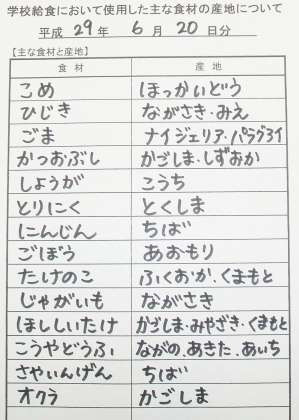 学校給食において使用した主な食材の産地について
平成 29 年 6 月 20 日分
【主な食材と産地】
食材 産地
こめ ほっかいどう
ひじき ながさき・みえ
ごま ナイジェリア・パラグアイ
かつおぶし かごしま・しずおか
しょうが こうち
とりにく とくしま
にんじん ちば
ごぼう あおもり
たけのこ ふくおか・くまもと
じゃがいも ながさき
ほししいたけ かごしま・みやざき・くまもと
こうやどうふ ながの・あきた・あいち
さやいんげん ちば
オクラ かごしま